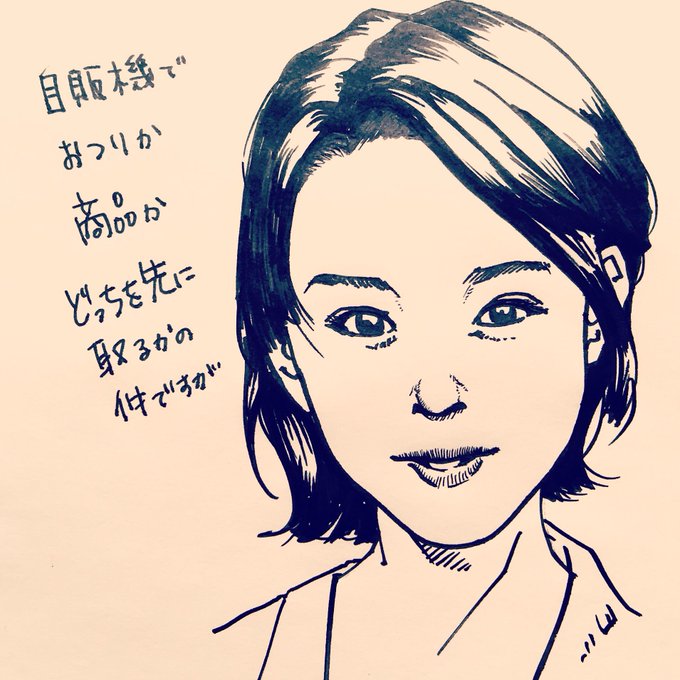 自販機で
おつりか
商品か
どっちを先に
取るかの
件ですが